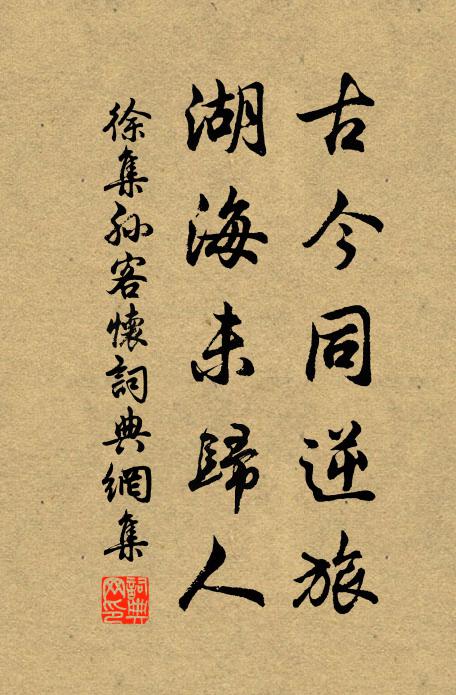 古今同逆旅
湖海未歸人
徐集孫客懷詞典網集
詞典網印